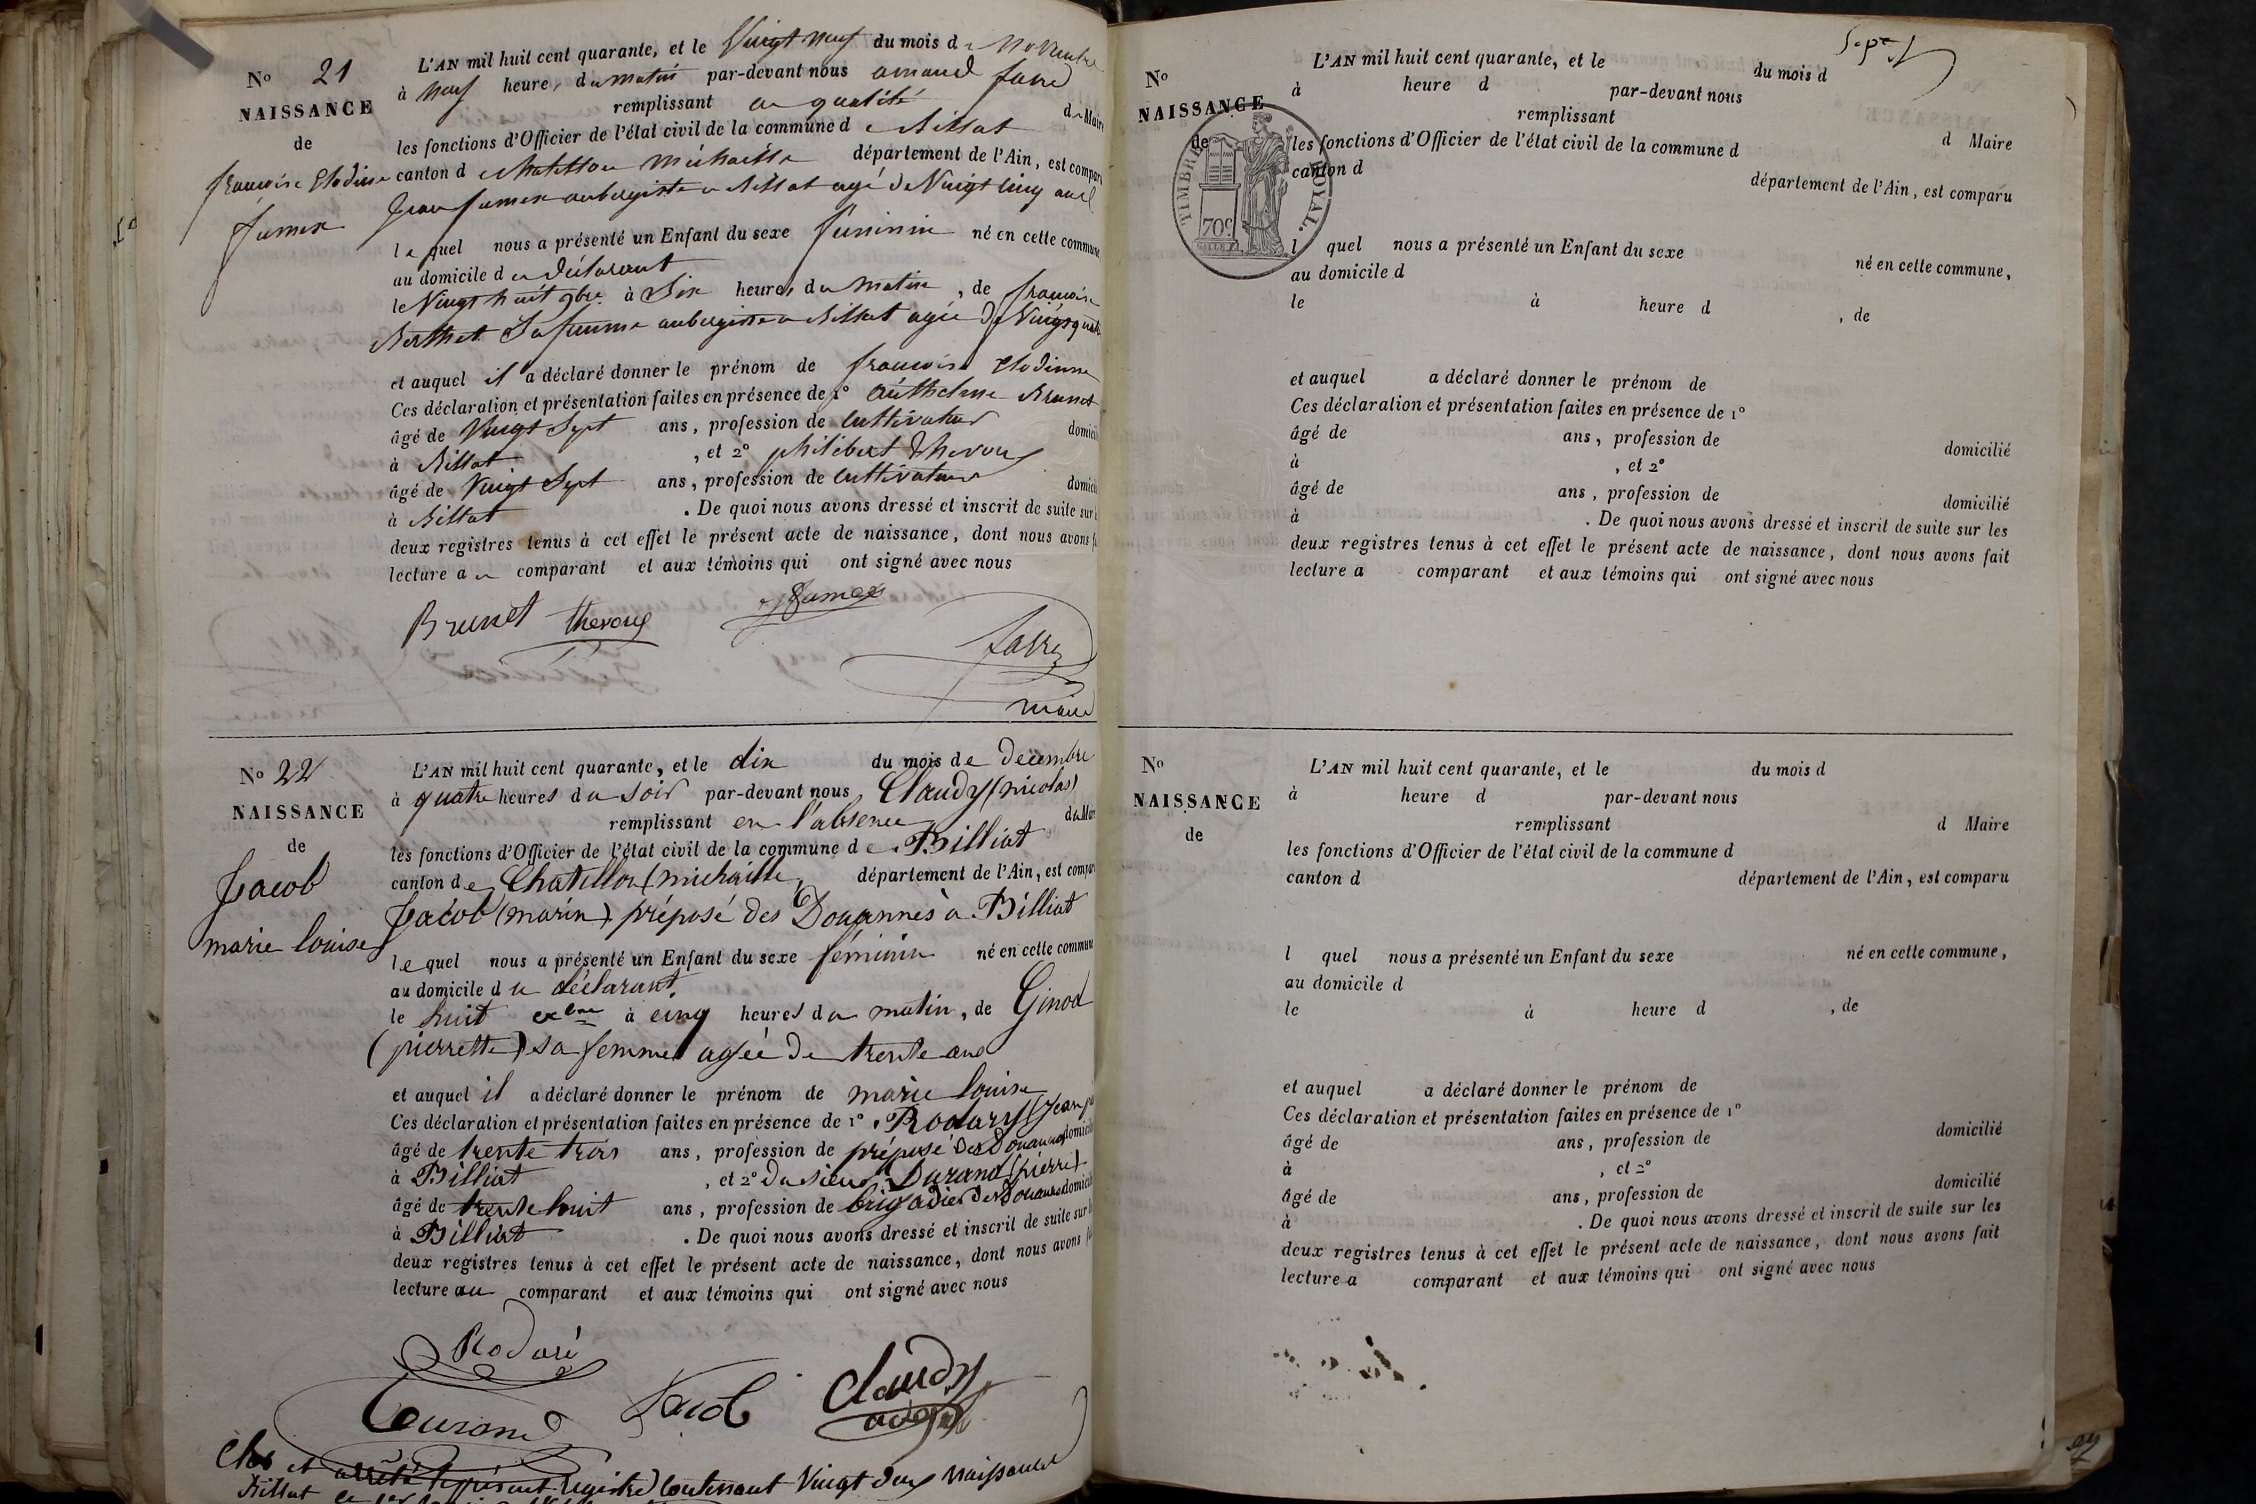 No 21
NAISSANCE
de
françoise Clodine
fumex
L'AN mil huit cent quarante, et le Vingt neuf du mois de Novembre
à neuf heures du matin par-devant nous amand favre
remplissant en qualité de Maire
les fonctions d'Officier de l'état civil de la commune de Billiat
canton de Chatillon Michaille département de l'Ain, est comparu
Jean fumex aubergiste a Billiat agé de Vingt cinq ans
lequel nous a présenté un Enfant du sexe feminin né en cette commune
au domicile du déclarant
le Vingt huit 9bre à Six heures du matin, de françoise
Berthet Sa femme aubergiste a Billiat agée de Vingt quatre
et auquel il a déclaré donner le prénom de françoise Clodinne
Ces déclaration et présentation faites en présence de 1° Anthelme Brunet
âgé de Vingt Sept ans, profession de cultivateur domicilié
à Billiat, et 2° philibert Thevoux
âgé de Vingt Sept ans, profession de cultivateur domicilié
à Billiat. De quoi nous avons dressé et inscrit de suite sur
deux registres tenus à cet effet le présent acte de naissance, dont nous avons
lecture au comparant et aux témoins qui ont signé avec nous
Brunet Thevoux fumex
favre
maire
No 22
NAISSANCE
de
Jacob
marie louise
L'AN mil huit cent quarante, et le dix du mois de decembre
à quatre heures du soir par-devant nous Claudy (nicolas)
remplissant en l'absence du Maire
les fonctions d'Officier de l'état civil de la commune de Billiat
canton de Chatillon (michaille, département de l'Ain, est comparu
Jacob (marin) préposé des Douannes à Billiat
lequel nous a présenté un Enfant du sexe féminin né en cette commune
au domicile du déclarant.
le huit à cinq heures du matin, de Ginod
(pierrette) sa femme agéé de trente ans
et auquel il a déclaré donner le prénom de marie louise
Ces déclaration et présentation faites en présence de 1° Rodary (Jean
âgé de trente trois ans, profession de préposé des Douannes domicilié
à Billiat, et 2° du sieur Durand (pierre)
âgé de trente huit ans, profession de brigadier des Douannes domicilié
à Billiat. De quoi nous avons dressé et inscrit de suite sur
deux registres tenus à cet effet le présent acte de naissance, dont nous avons
lecture au comparant et aux témoins qui ont signé avec nous
Rodari
Durand Jacob Claudy
Clos et arrêté le présent Registre Contenant Vingt deux Naissances
Billiat
Sept
No
NAISSANCE
de
TIMBRE ROYAL.
70c
L'AN mil huit cent quarante, et le du mois d
à heure d par-devant nous
remplissant d Maire
les fonctions d'Officier de l'état civil de la commune d
canton d département de l'Ain, est comparu
l quel nous a présenté un Enfant du sexe né en cette commune,
au domicile d
le à heure d , de
et auquel a déclaré donner le prénom de
Ces déclaration et présentation faites en présence de 1°
âgé de ans, profession de domicilié
à , et 2°
âgé de ans, profession de domicilié
à . De quoi nous avons dressé et inscrit de suite sur les
deux registres tenus à cet effet le présent acte de naissance, dont nous avons fait
lecture a comparant et aux témoins qui ont signé avec nous
No
NAISSANCE
de
L'AN mil huit cent quarante, et le du mois d
à heure d par-devant nous
remplissant d Maire
les fonctions d'Officier de l'état civil de la commune d
canton d département de l'Ain, est comparu
l quel nous a présenté un Enfant du sexe né en cette commune,
au domicile d
le à heure d , de
et auquel a déclaré donner le prénom de
Ces déclaration et présentation faites en présence de 1°
âgé de ans, profession de domicilié
à , et 2°
âgé de ans, profession de domicilié
à . De quoi nous avons dressé et inscrit de suite sur les
deux registres tenus à cet effet le présent acte de naissance, dont nous avons fait
lecture a comparant et aux témoins qui ont signé avec nous